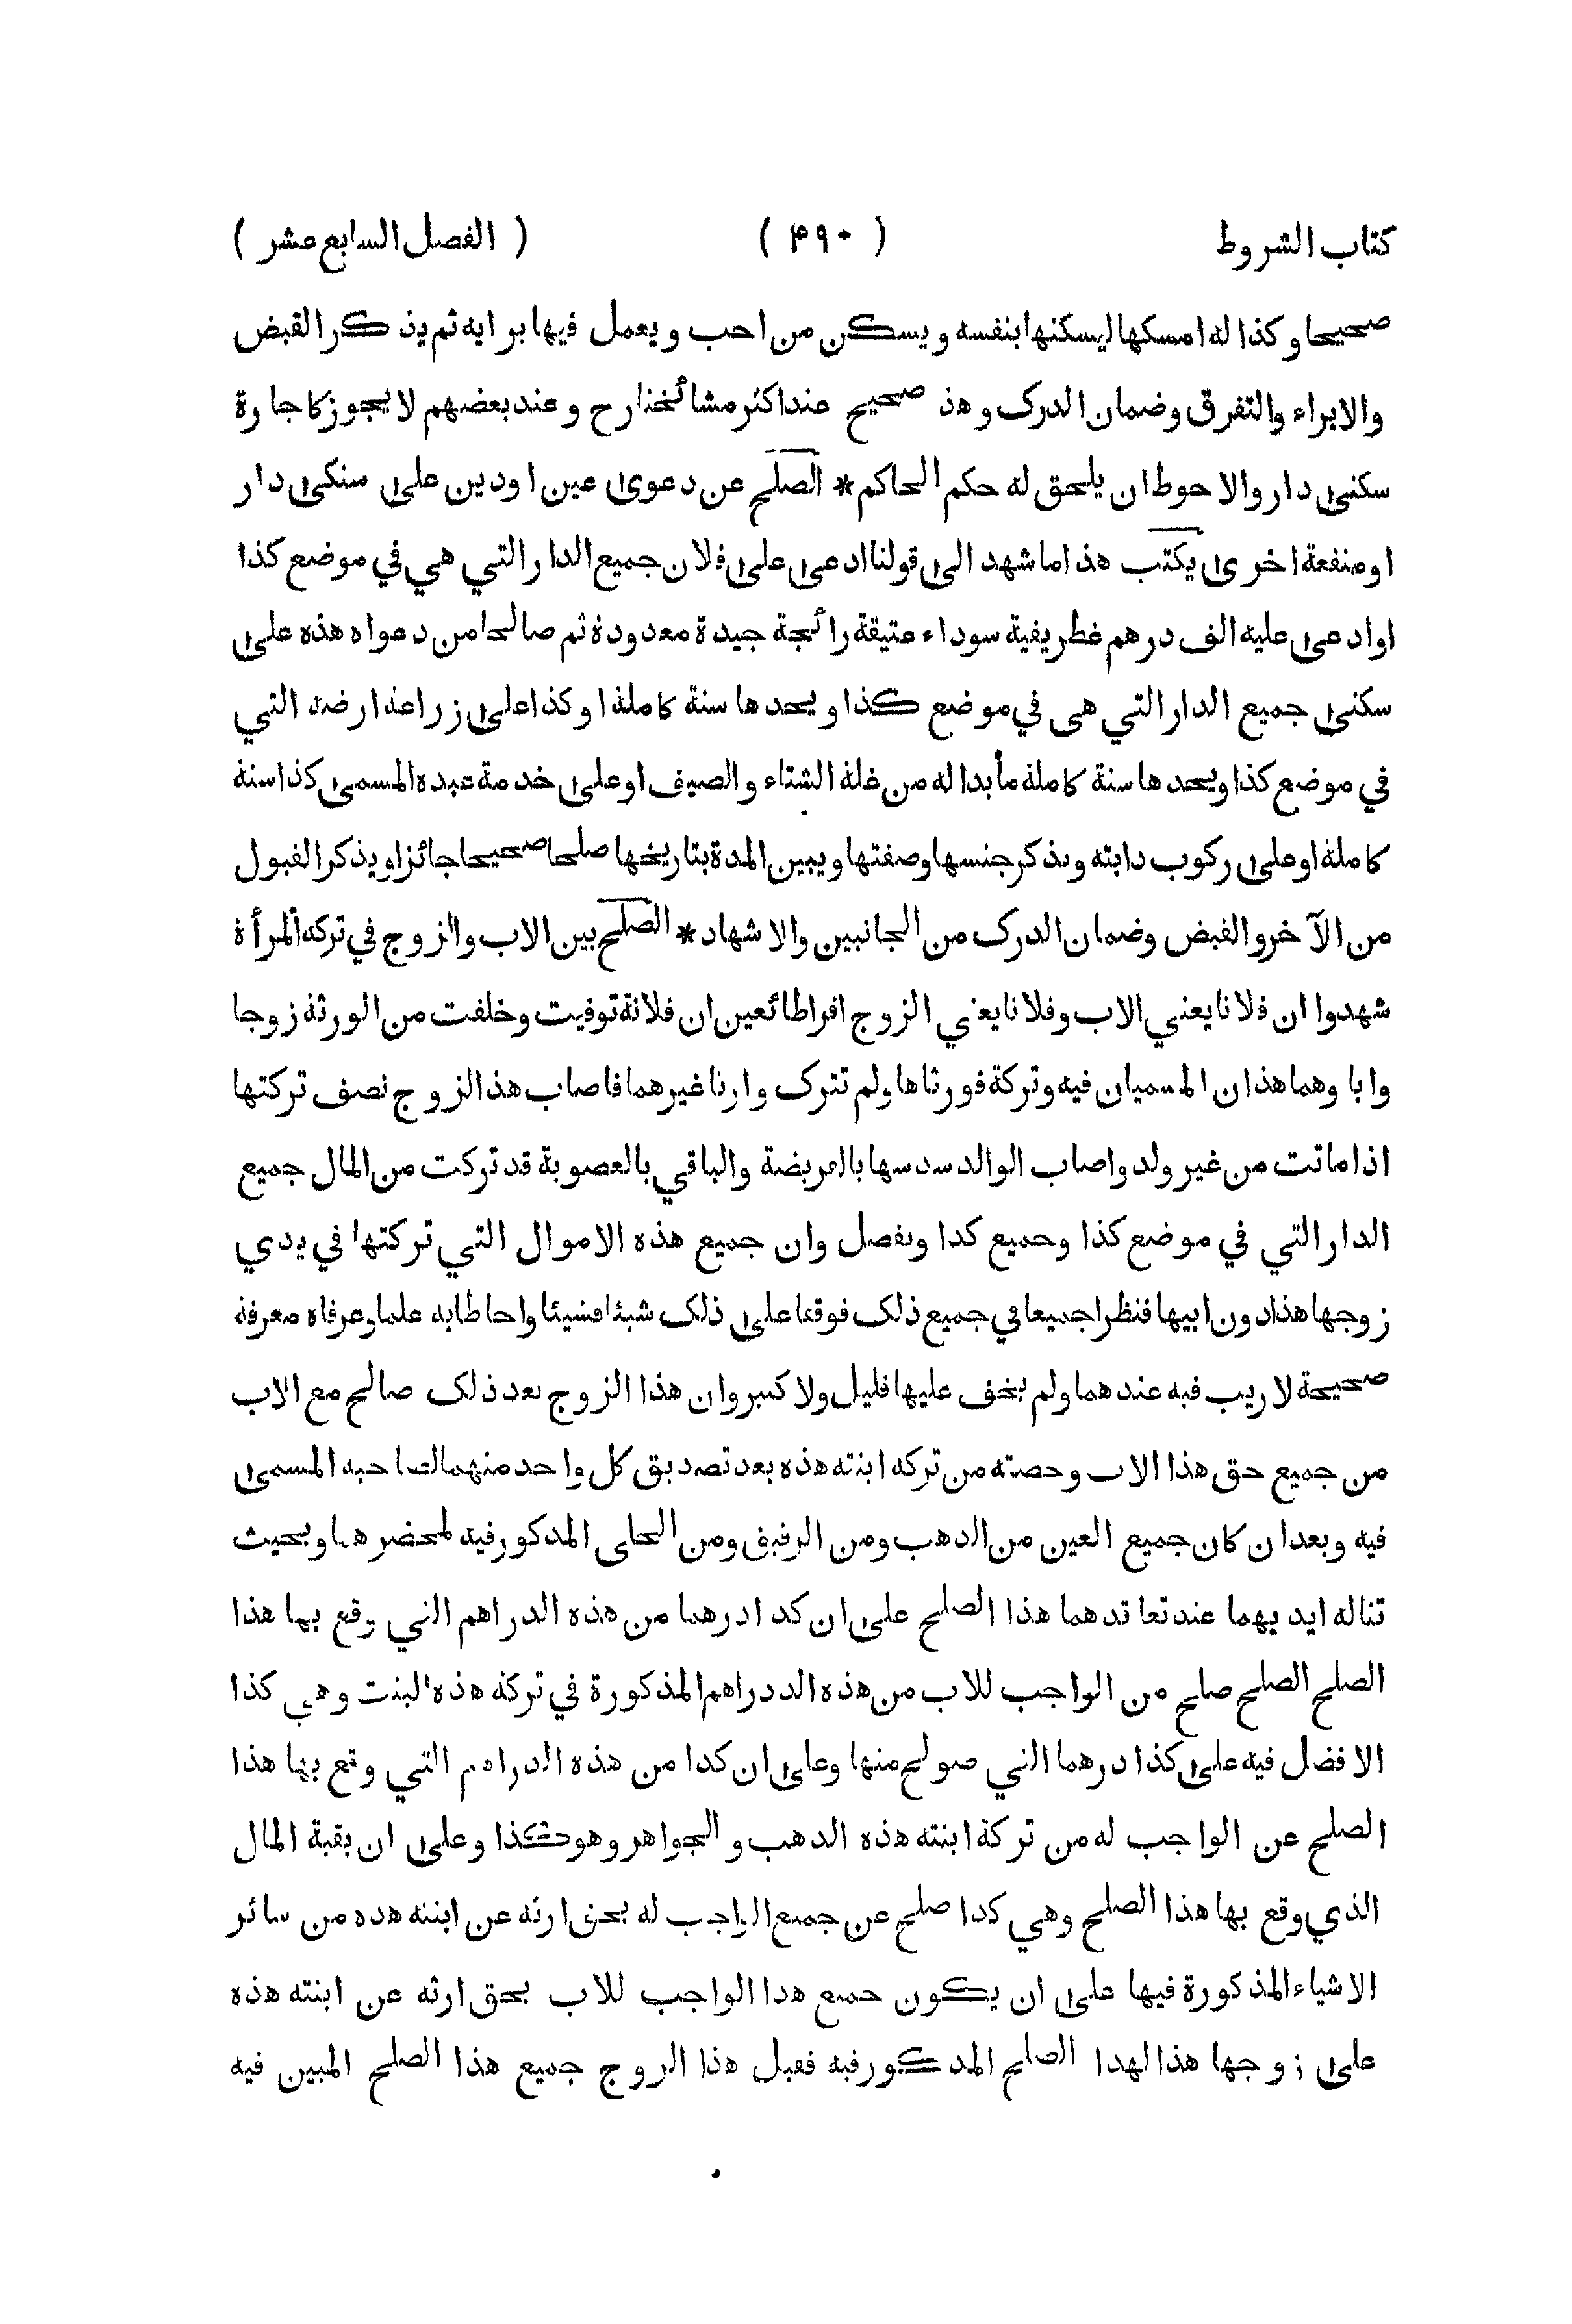 كتاب الشروط ( ۴۹۰ ) ( الفصل السابع عشر )
صحيحا وكذا له امسكها ليسكنها بنفسه ويسكن من احب ويعمل فيها برايه ثم يذكر القبض
والابراء والتفرق وضمان الدرك وهذ صحيح عند اكثر مشائخنا رح وعند بعضهم لا يجوز كاجارة
سكنى دار والاحوط ان يلحق له حكم الحاكم * الصلح عن دعوى عين او دين على سنكى دار
او منفعة اخرى يكتب هذا ما شهد الى قولنا ادعى على فلان جميع الدار التي هي في موضع كذا
او ادعى عليه الف درهم غطريفية سوداء عتيقة رائجة جيدة معدودة ثم صالحا من دعواه هذه على
سكنى جميع الدار التي هى في موضع كذا ويحدها سنة كاملة او كذا على زراعة ارضه التي
في موضع كذا ويحدها سنة كاملة ما بدا له من غلة الشتاء والصيف او على خدمة عبده المسمى كذا سنة
كاملة او على ركوب دابته ويذكر جنسها وصفتها ويبين المدة بتاريخها صلحا صحيحا جائزا ويذكر القبول
من الآخر والقبض وضمان الدرك من الجانبين والاشهاد * الصلح بين الاب والزوج في تركة المرأة
شهدوا ان فلانا يعني الاب وفلانا يعني الزوج اقرا طائعين ان فلانة توفيت وخلفت من الورثة زوجا
وابا وهما هذان المسميان فيه وتركة فورثاها ولم تترك وارثا غيرهما فاصاب هذا الزوج نصف تركتها
اذا ماتت من غير ولد واصاب الوالد سدسها بالفريضة والباقي بالعصوبة قد تركت من المال جميع
الدار التي في موضع كذا وجميع كذا ويفصل وان جميع هذه الاموال التي تركتها في يدي
زوجها هذا دون ابيها فنظرا جميعا في جميع ذلك فوقفا على ذلك شيئا فشيئا واحاطا به علما وعرفاه معرفة
صحيحة لا ريب فيه عندهما ولم يخف عليها قليل ولا كثير وان هذا الزوج بعد ذلك صالح مع الاب
من جميع حق هذا الاب وحصته من تركة ابنته هذه بعد تصديق كل واحد منهما لصاحبه المسمى
فيه وبعد ان كان جميع العين من الذهب ومن الرقيق ومن الحلى المذكور فيه لمحضرهما وبحيث
تناله ايديهما عند تعاقدهما هذا الصلح على ان كذا درهما من هذه الدراهم التي وقع بها هذا
الصلح الصلح صلح من الواجب للاب من هذه الددراهم المذكورة في تركة هذه البنت وهي كذا
الا فضل فيه على كذا درهما التي صولح منها وعلى ان كذا من هذه الدراهم التي وقع بها هذا
الصلح عن الواجب له من تركة ابنته هذه الذهب والجواهر وهو كذا وعلى ان بقية المال
الذي وقع بها هذا الصلح وهي كذا صلح عن جميع الواجب له بحق ارثه عن ابنته هذه من سائر
الاشياء المذكورة فيها على ان يكون جميع هذا الواجب للاب بحق ارثه عن ابنته هذه
على زوجها هذا لهذا الصلح المذكور فيه فقبل هذا الزوج جميع هذا الصلح المبين فيه